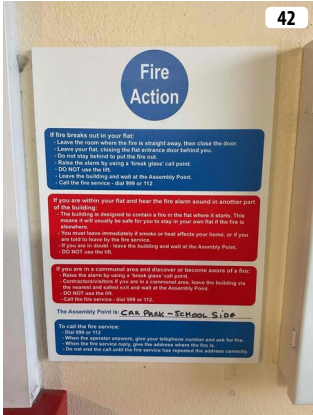 42
Fire
Action
If fire breaks out in your flat:
- Leave the room where the fire is straight away, then close the door.
- Leave your flat, closing the flat entrance door behind you.
- Do not stay behind to put the fire out.
- Raise the alarm by using a 'break glass' call point.
- DO NOT use the lift.
- Leave the building and wait at the Assembly Point.
- Call the fire service - dial 999 or 112
If you are within your flat and hear the fire alarm sound in another part
of the building:
- The building is designed to contain a fire in the flat where it starts. This
means it will usually be safe for you to stay in your own flat if the fire is
elsewhere.
- You must leave immediately if smoke or heat affects your home, or if you
are told to leave by the fire service.
- If you are in doubt - leave the building and wait at the Assembly Point.
- DO NOT use the lift.
If you are in a communal area and discover or become aware of a fire:
- Raise the alarm by using a 'break glass' call point.
- Contractors/visitors if you are in a communal area, leave the building via
the nearest and safest exit and wait at the Assembly Point.
- DO NOT use the lift.
- Call the fire service - dial 999 or 112.
The Assembly Point is: CAR PARK - SCHOOL SIDE
To call the fire service:
- Dial 999 or 112
- When the operator answers, give your telephone number and ask for fire.
- When the fire service reply, give the address where the fire is.
- Do not end the call until the fire service has repeated the address correctly.